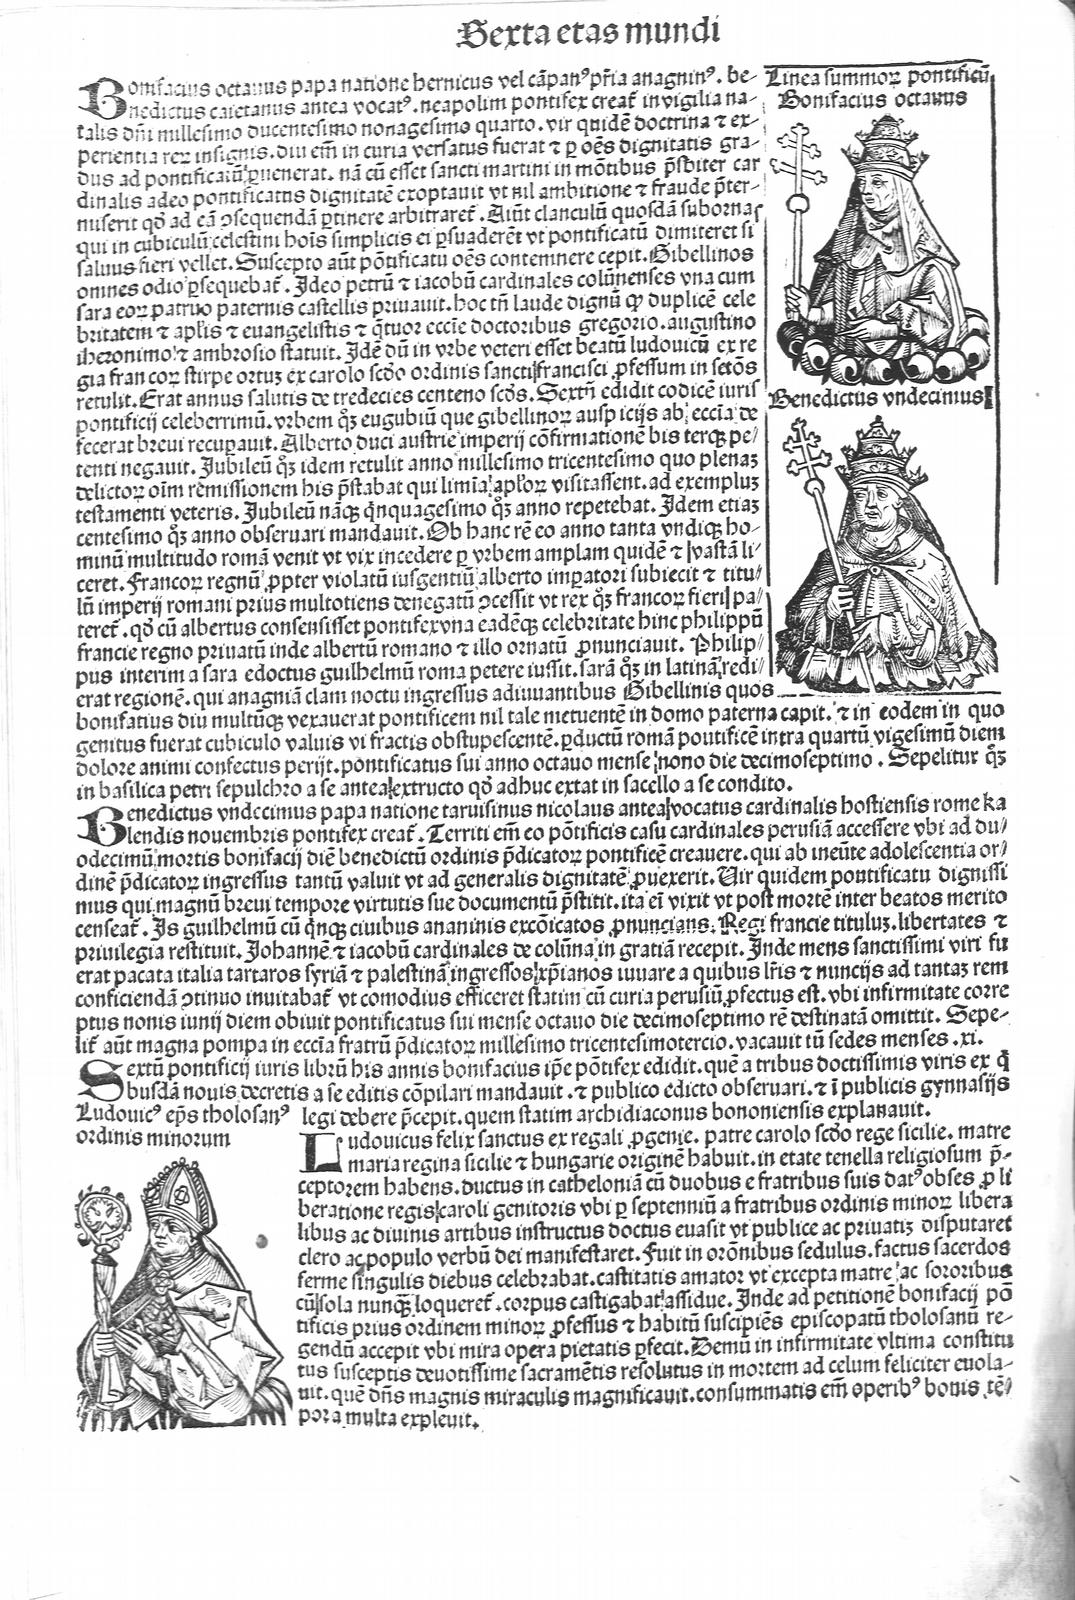 Sexta etas mundi
Bonifacius octauus papa natione hernicus vel cãpanꝰ pr̃ia anagninꝰ. be-
nedictus caietanus antea vocatꝰ. neapolim pontifex creat̃ in vigilia na-
talis dñi millesimo ducentesimo nonagesimo quarto. vir quidẽ doctrina ⁊ ex-
perientia reꝝ insignis. diu em̃ in curia versatus fuerat ⁊ ꝑ oẽs dignitatis gra-
dus ad pontificatũ ꝑuenerat. nã cũ esset sancti martini in mõtibus p̃sbiter car
dinalis adeo pontificatus dignitatẽ exoptauit vt nil ambitione ⁊ fraude p̃ter-
miserit qđ ad eã ꝯsequendã ꝑtinere arbitraret̃. Aiũt clanculũ quosdã subornas
qui in cubiculũ celestini hoĩs simplicis ei ꝑsuaderẽt vt pontificatũ dimiteret si
saluus fieri vellet. Suscepto aũt põtificatu oẽs contemnere cepit. Gibellinos
omnes odio ꝑsequebat̃. Ideo petrũ ⁊ iacobũ cardinales colũnenses vna cum
sara eoꝝ patruo paternis castellis priuauit. hoc tñ laude dignũ ꝙ duplicẽ cele
britatem ⁊ aplis ⁊ euangelistis ⁊ q̃tuor eccĩe doctoribus gregorio. augustino
iheronimo ⁊ ambrosio statuit. Idẽ dũ in vrbe veteri esset beatũ ludouicũ ex re
gia francoꝝ stirpe ortuꝫ ex carolo scđo ordinis sancti francisci ꝓfessum in sctõs
retulit. Erat annus salutis de tredecies centeno scđs. Sextũ edidit codicẽ iuris
pontificij celeberrimũ. vrbem qꝫ eugubiũ que gibellinoꝝ auspicijs ab eccĩa de
fecerat breui recuꝑauit. Alberto duci austrie imperij cõfirmationẽ bis terqꝫ pe/
tenti negauit. Jubileũ qꝫ idem retulit anno millesimo tricentesimo quo plenaꝫ
delictoꝝ oĩm remissionem his p̃stabat qui limĩa apl̃oꝝ visitassent. ad exempluꝫ
testamenti veteris. Jubileũ nãqꝫ qnquagesimo qꝫ anno repetebat. Idem etiaꝫ
centesimo qꝫ anno obseruari mandauit. Ob hanc rẽ eo anno tanta vndiqꝫ ho-
minũ multitudo romã venit vt vix incedere ꝑ vrbem amplam quidẽ ⁊ vastã li-
ceret. Francoꝝ regnũ ꝓpter violatũ ius gentiũ alberto imꝑatori subiecit ⁊ titu/
lũ imperij romani prius multotiens denegatũ ꝯcessit vt rex qꝫ francoꝝ fieri pa/
teret̃. qđ cũ albertus consensisset pontifex vna eadẽqꝫ celebritate hinc philippũ
francie regno priuatũ inde albertũ romano ⁊ illo ornatũ ꝓnunciauit. Philip/
pus interim a sara edoctus guilhelmũ roma petere iussit. sarã qꝫ in latinã redi/
erat regionẽ. qui anagniã clam noctu ingressus adiuuantibus Gibellinis quos
bonifatius diu multũqꝫ vexauerat pontificem nil tale metuentẽ in domo paterna capit. ⁊ in eodem in quo
genitus fuerat cubiculo valuis vi fractis obstupescentẽ. ꝑductũ romã pontificẽ intra quartũ vigesimũ diem
dolore animi confectus perijt. pontificatus sui anno octauo mense nono die decimoseptimo. Sepelitur qꝫ
in basilica petri sepulchro a se antea extructo qđ adhuc extat in sacello a se condito.
Linea summoꝝ pontificũ
Bonifacius octauus
Benedictus vndecimus
Benedictus vndecimus papa natione taruisinus nicolaus antea vocatus cardinalis hostiensis rome ka
lendis nouembris pontifex creat̃. Territi em̃ eo põtificis casu cardinales perusiã accessere vbi ad du/
odecimũ mortis bonifacij diẽ benedictũ ordinis p̃dicatoꝝ pontificẽ creauere. qui ab ineũte adolescentia or/
dinẽ p̃dicatoꝝ ingressus tantũ valuit vt ad generalis dignitatẽ ꝓuexerit. Uir quidem pontificatu dignissi
mus qui magnũ breui tempore virtutis sue documentũ p̃stitit. ita em̃ vixit vt post mortẽ inter beatos merito
censeat̃. Is guilhelmũ cũ qnqꝫ ciuibus ananinis excõicatos ꝓnuncians. Regi francie tituluꝫ. libertates ⁊
priuilegia restituit. Johannẽ ⁊ iacobũ cardinales de colũna in gratiã recepit. Inde mens sanctissimi viri fu
erat pacata italia tartaros syriã ⁊ palestinã ingressos xp̃ianos iuuare a quibus lr̃is ⁊ nuncijs ad tantaꝫ rem
conficiendã ꝯtinuo inuitabat̃ vt comodius efficeret statim cũ curia perusiũ ꝓfectus est. vbi infirmitate corre
ptus nonis iunij diem obiuit pontificatus sui mense octauo die decimoseptimo rẽ destinatã omittit. Sepe-
lit̃ aũt magna pompa in eccĩa fratrũ p̃dicatoꝝ millesimo tricentesimotercio. vacauit tũ sedes menses .xi.
Sextũ pontificij iuris librũ his annis bonifacius ip̃e põtifex edidit. quẽ a tribus doctissimis viris ex q̃
busdã nouis decretis a se editis cõpilari mandauit. ⁊ publico edicto obseruari. ⁊ ĩ publicis gymnasijs
legi debere p̃cepit. quem statim archidiaconus bononiensis explanauit.
Ludouicꝰ ep̃s tholosanꝰ
ordinis minorum
Ludouicus felix sanctus ex regali ꝓgenie. patre carolo scđo rege sicilie. matre
maria regina sicilie ⁊ hungarie originẽ habuit. in etate tenella religiosum p̃-
ceptorem habens. ductus in catheloniã cũ duobus e fratribus suis datꝰ obses ꝓ li
beratione regis caroli genitoris vbi ꝑ septenniũ a fratribus ordinis minoꝝ libera
libus ac diuinis artibus instructus doctus euasit vt publice ac priuatiꝫ disputaret
clero ac populo verbũ dei manifestaret. Fuit in orõnibus sedulus. factus sacerdos
ferme singulis diebus celebrabat. castitatis amator vt excepta matre ac sororibus
cũ sola nunqꝫ loqueret̃. corpus castigabat assidue. Inde ad petitionẽ bonifacij põ
tificis prius ordinem minoꝝ ꝓfessus ⁊ habitũ suscipiẽs episcopatũ tholosanũ re-
gendũ accepit vbi mira opera pietatis ꝑfecit. Demũ in infirmitate vltima constitu
tus susceptis deuotissime sacramẽtis resolutus in mortem ad celum feliciter euola-
uit. quẽ dñs magnis miraculis magnificauit. consummatis em̃ operibꝰ bonis tẽ/
pora multa expleuit.